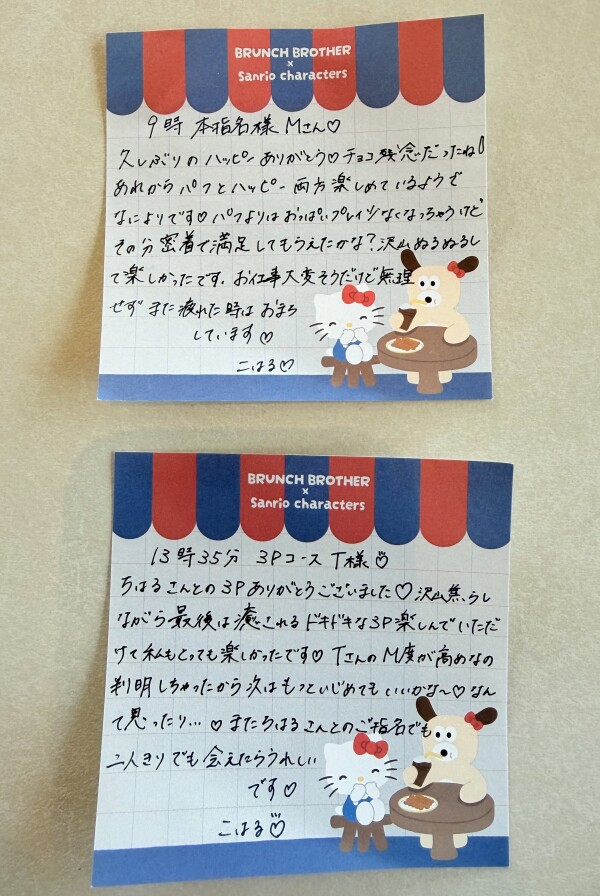 BRUNCH BROTHER
×
Sanrio characters
9時 本指名様 Mさん♡
久しぶりのハッピーありがとう♡チョコ残念だったね!
あれからパフとハッピー両方楽しめているようで
なによりです♡パフよりはおっぱいプレイ少なくなっちゃうけど
その分密着で満足してもらえたかな?沢山ぬるぬるし
て楽しかったです。お仕事大変そうだけど無理
せずまた疲れた時はおまち
しています♡
こはる♡
BRUNCH BROTHER
×
Sanrio characters
13時35分 3Pコース T様♡
ちはるさんとの3Pありがとうございました♡沢山焦らし
ながら最後は癒されるドキドキな3P楽しんでいただだ
けて私もとっても楽しかったです♡TさんのM度が高めなの
判明しちゃったから次はもっといじめてもいいかな〜♡なん
て思ったり…♡またちはるさんとのご指名でも
二人きりでも会えたらうれしい
です♡
こはる♡